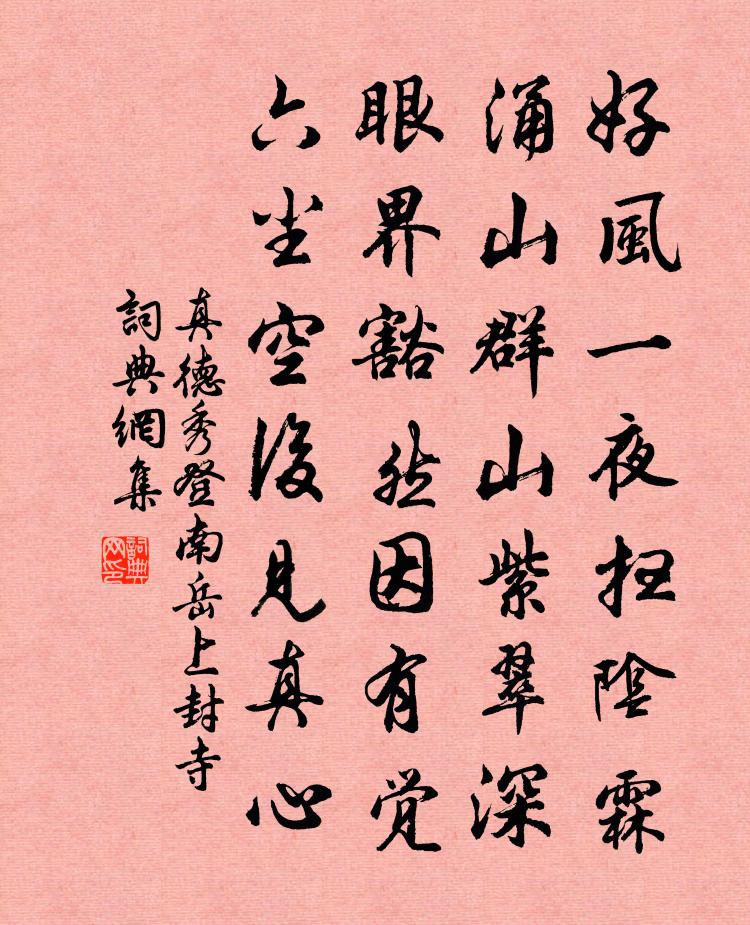 好風一夜扫陰霖
涌山群山紫翠深
眼界豁然因有觉
六尘空後見真心
真德秀登南岳上封寺
詞典網集
詞典网印